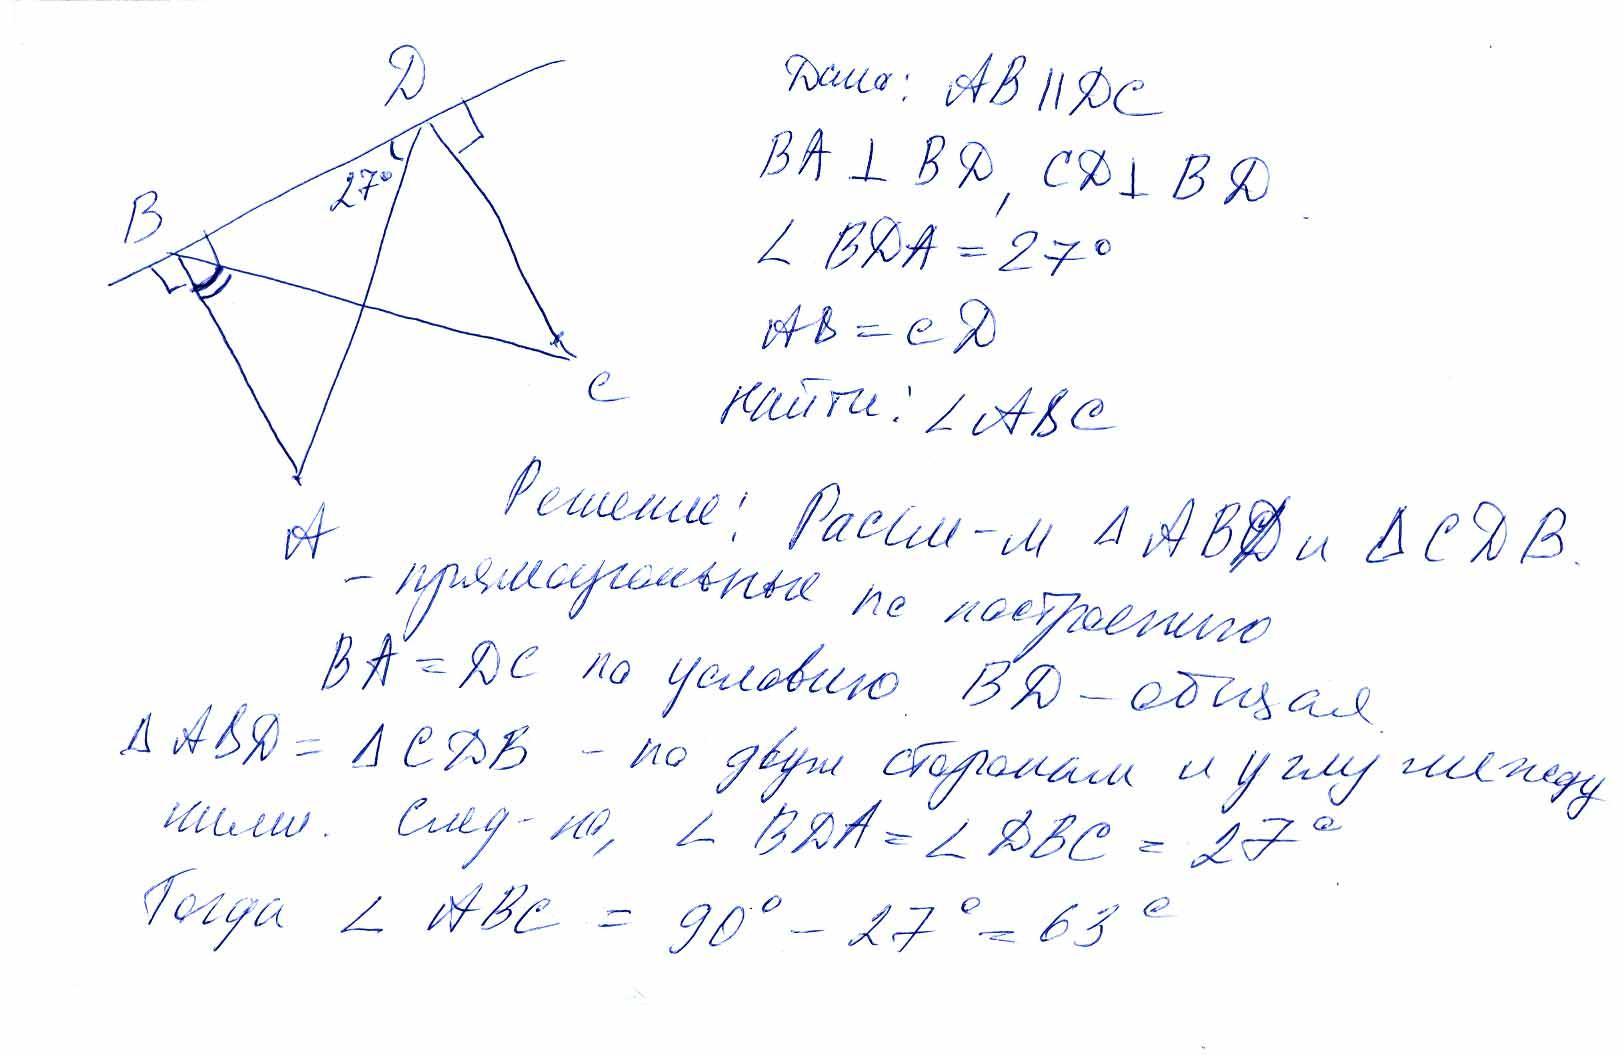 D
27°
B
C
A
Дано: AB || DC
BA ⊥ BD, CD ⊥ BD
∠ BDA = 27°
AB = CD
Найти: ∠ ABC
Решение: Рассм-м Δ ABD и Δ CDB.
– прямоугольные по построению
BA = DC по условию BD – общая
Δ ABD = Δ CDB – по двум сторонам и углу между
ними. След-но, ∠ BDA = ∠ DBC = 27°
Тогда ∠ ABC = 90° – 27° = 63°